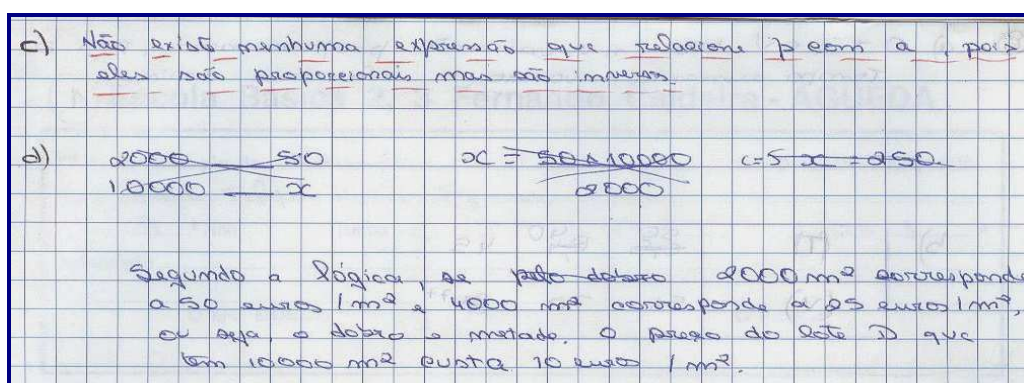 c) Não existe nenhuma expressão que relacione p com a, pois
eles são proporcionais mas são inversos.
d) 2000 — 50 x = 50 x 10000 <=> x = 250
10000 — x 2000
Segundo a lógica, se pelo dobro 2000 m² corresponde
a 50 euros / m² e 4000 m² corresponde a 25 euros / m²,
ou seja, o dobro e metade. O preço do lote D que
tem 10000 m² custa 10 euros / m².